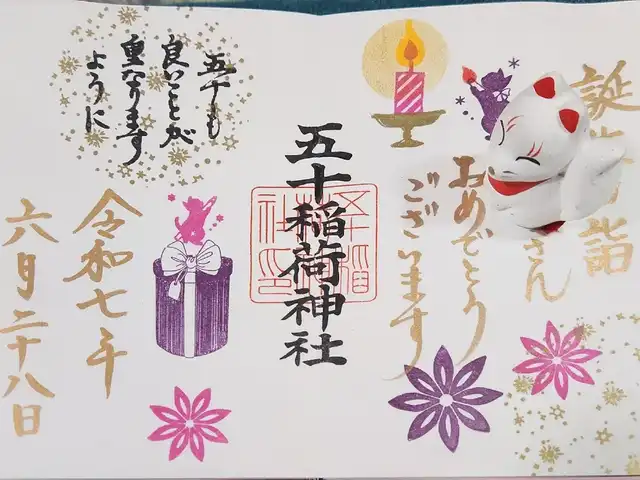 誕生日詣
さん
おめでとう
ございます
五十稲荷神社
五十も
良いことが
重なります
ように
令和七年
六月二十八日